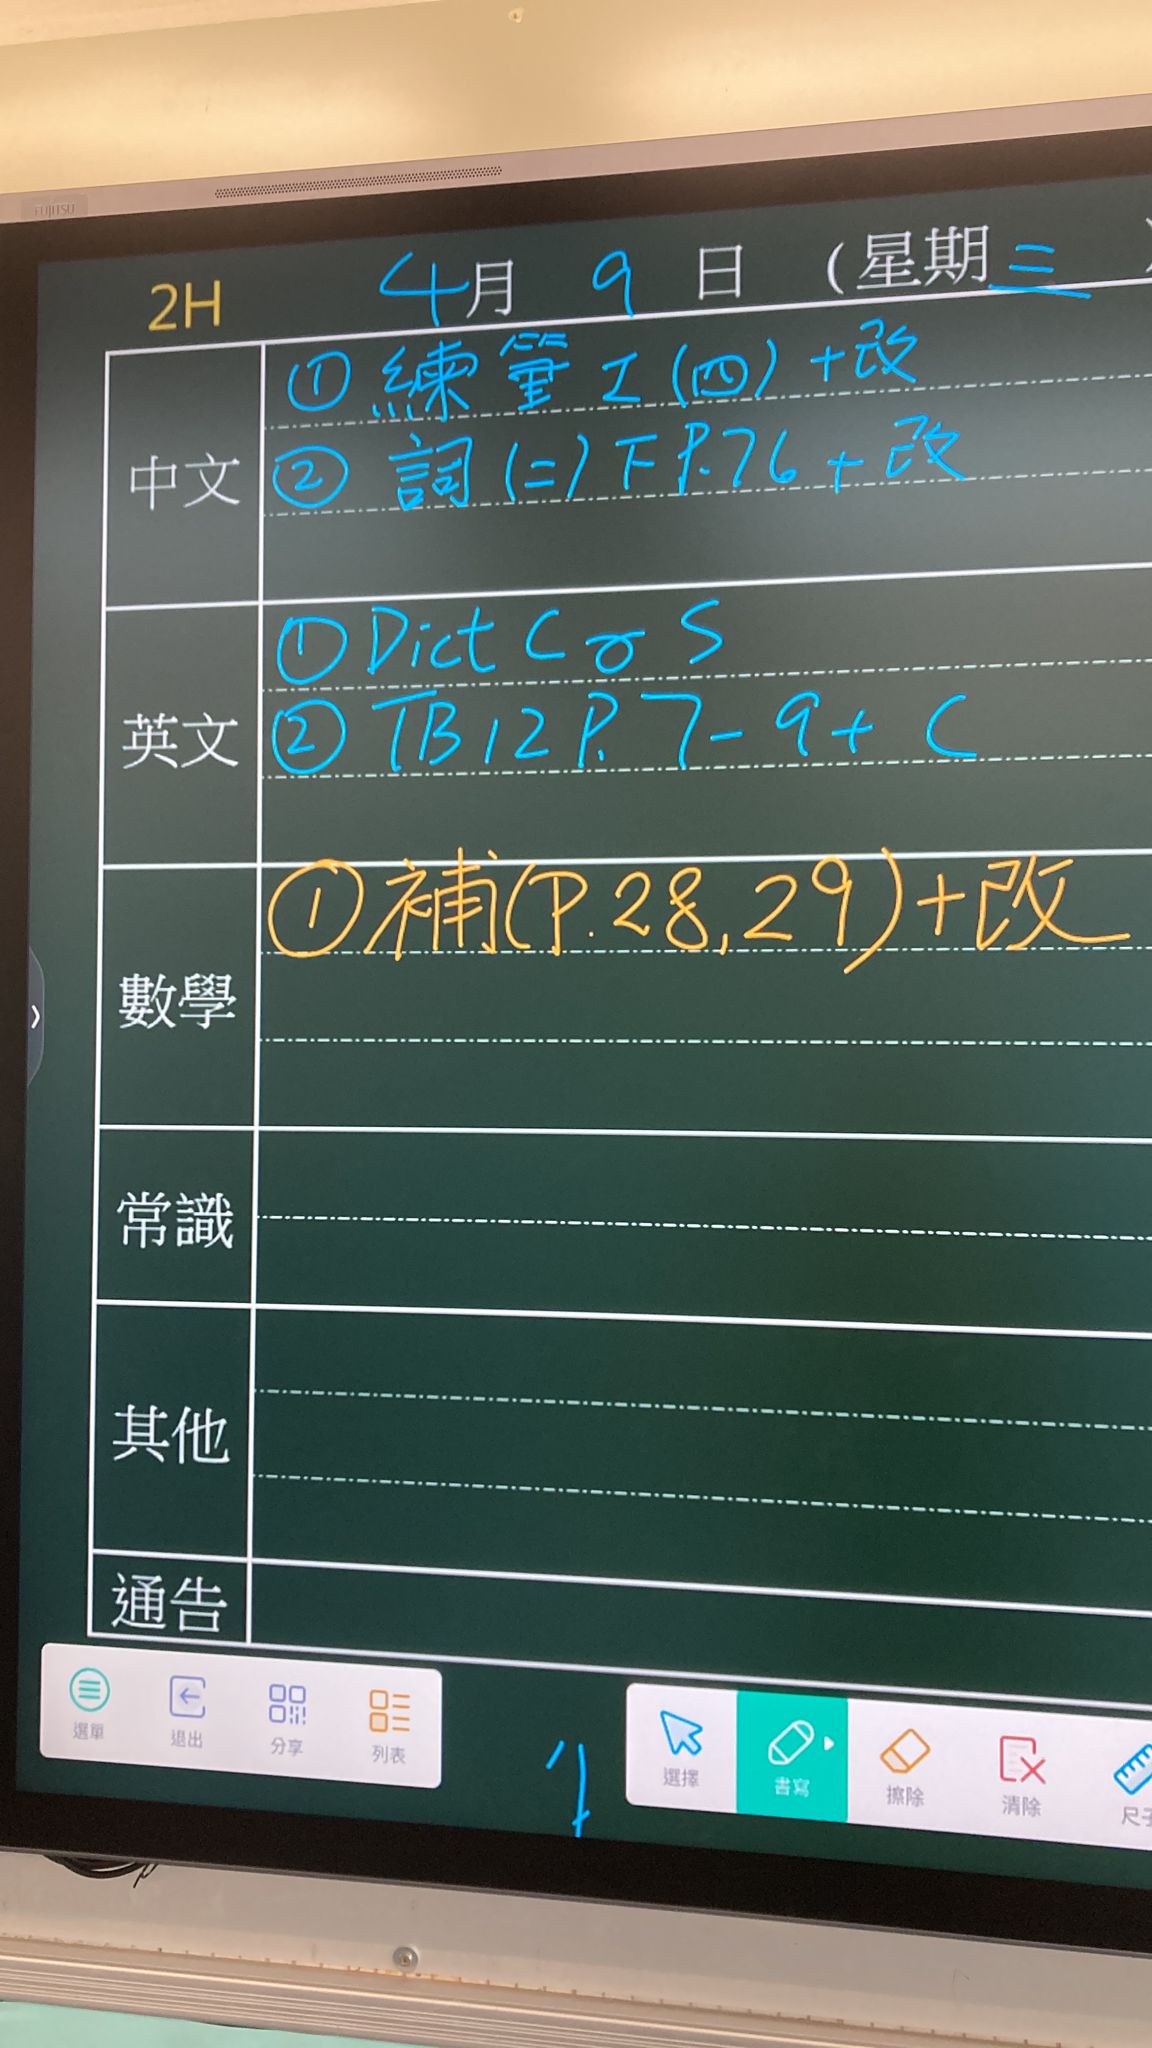 FUJITSU
2H 4月 9 日 (星期三 )
中文
① 練筆工(四)+改
② 詞(二)下P.76+改
英文
① Dict C or S
② TB12 P.7-9+C
數學
① 補(P.28,29)+改
常識
其他
通告
選單 退出 分享 列表
1
選擇 書寫 擦除 清除 尺子